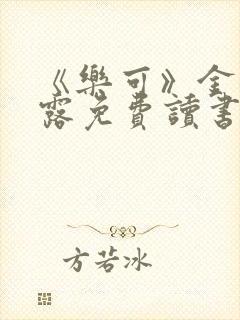 《樂可》金
露免費讀書
方若冰